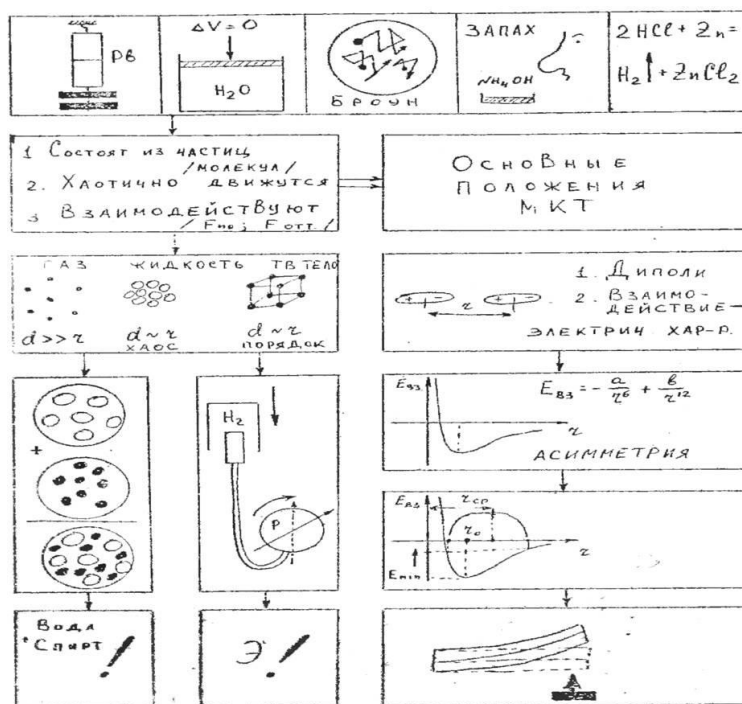 Pb
ΔV=0
H₂O
БРОУН
ЗАПАХ
NH₄OH
2HCl + Zn =
H₂↑ + ZnCl₂
1 Состоят из частиц
/молекул/
2. Хаотично движутся
3 Взаимодействуют
/Fпр; Fотт./
Основные
положения
МКТ
ГАЗ ЖИДКОСТЬ ТВ ТЕЛО
d >> r d ~ r d ~ r
ХАОС ПОРЯДОК
1. Диполи
2. Взаимо-
действие —
электрич хар-р.
+ − + −
r
H₂
P
Eвз
Eвз = − a/r⁶ + b/r¹²
r
АСИММЕТРИЯ
+
Eвз
rср
r₀
r
Emin
Вода
+ Спирт
Э